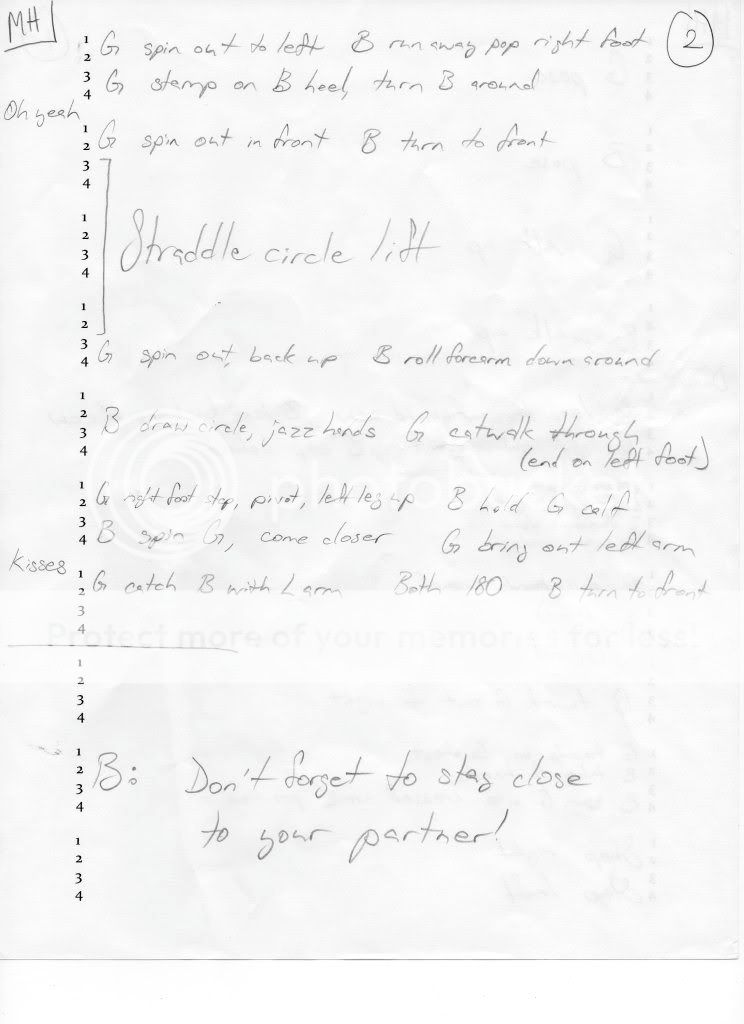 MH
2
1 G spin out to left B run away pop right foot
2
3 G stamp on B heel, turn B around
4
Oh yeah
1
2 G spin out in front B turn to front
3
4
1
2
3 Straddle circle lift
4
1
2
3
4 G spin out, back up B roll forearm down around
1
2
3 B draw circle, jazz hands G catwalk through
4 (end on left foot)
1
2 G right foot step, pivot, left leg up B hold G calf
3
4 B spin G, come closer G bring out left arm
Kisses
1
2 G catch B with L arm Both 180 B turn to front
3
4
Protect more of your memories for less!
1
2
3
4
1
2 B: Don't forget to stay close
3
4
to your partner!
1
2
3
4